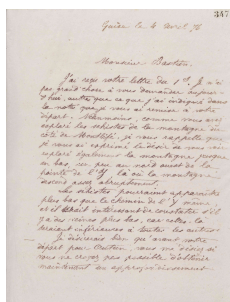 347
Guise le 4 Avril 76
Monsieur Bastien
J'ai reçu votre lettre du 1er. Je n'ai
pas grand chose à vous demander aujour-
d'hui, autre que ce que j'ai indiqué dans
la note que je vous ai remise à votre
départ. Néanmoins, comme vous avez
exploré les schistes de la montagne du
côté de je vous rappelle que
je vous ai exprimé le désir de vous voir
explorer également la montagne jusque
en bas, un peu au nord aussi de la
pointe de l'Y là où la montagne
descend assez abruptement.
Les schistes pourraient apparaître
plus bas que le chemin de l'Y
et il serait intéressant de constater s'il
y a des veines plus bas, car elles
seraient inférieures à toutes les autres.
Je désirerais bien qu'avant votre
départ pour vous me disiez si
vous ne croyez pas possible d'obtenir
maintenant un approvisionnement